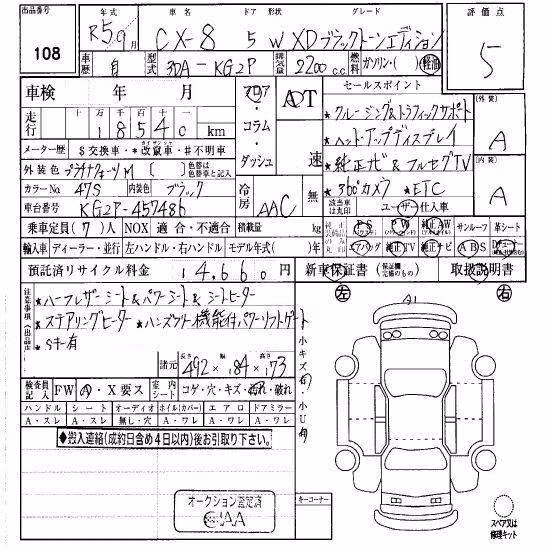 出品番号
108
年式 車名 ドア 形状 グレード
R5.9月 CX-8 5 W XDブラックトーンエディション
車歴 自 型式 3DA-KG2P 排気量 2200cc 燃料 ガソリン・軽油
評価点
5
車検 年 月
走行 十万千百十
18540 km
メーター歴 $交換車・*改竄車・#不明車
外装色 プラチナクォーツM 色替は色替車と記入
カラーNo 47S 内装色 ブラック
車台番号 KG2P-457486
フロア・コラム・ダッシュ
AT
速
冷房 AAC 無
セールスポイント
★クルージング&トラフィックサポート
★ヘッドアップディスプレイ
★純正ナビ&フルセグTV
★360°カメラ ★ETC
該当車は丸印 ユーザー仕入車
外装 A
内装 A
乗車定員(7)人 NOX 適合・不適合 積載量 kg
PS PW 純正AW サンルーフ 革シート
輸入車 ディーラー・並行 左ハンドル・右ハンドル モデル年式( )年
エアバッグ 純正TV 純正ナビ ABS
預託済リサイクル料金 14,660円
新車保証書 (保証欄完備のもの) 取扱説明書
注意事項
★ハーフレザーシート&パワーシート&シートヒーター
★ステアリングヒーター ★ハンズフリー機能付パワーリフトゲート
★S千有
諸元 長さ 492 幅 184 高さ 173
検査員記入 FW A・X要ス 室内シート コゲ・穴・キズ・汚れ・破れ
ハンドル シート オーディオ ホイル(カバー) エアロ ドアミラー
A・スレ A・スレ 無し・穴 A・ワレ A・ワレ A・ワレ
◆搬入連絡(成約日含め4日以内)後お引取り下さい。
オークション査定済
左 A1 右
小キズ有・小U有
キーコーナー
スペア又は修理キット